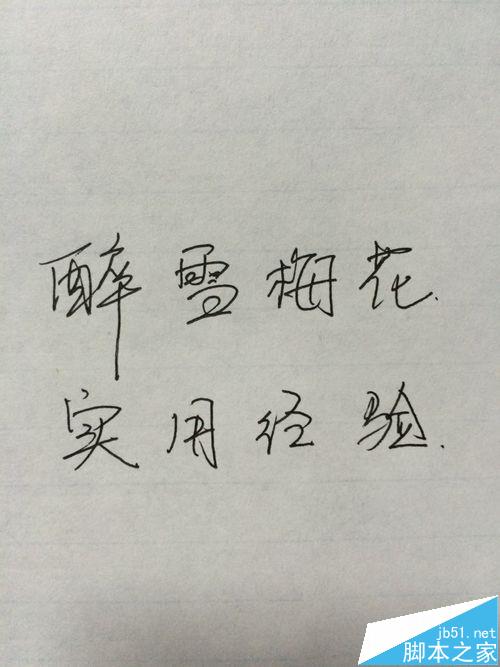 醉雪梅花.
实用经验.
jb51.net
脚本之家